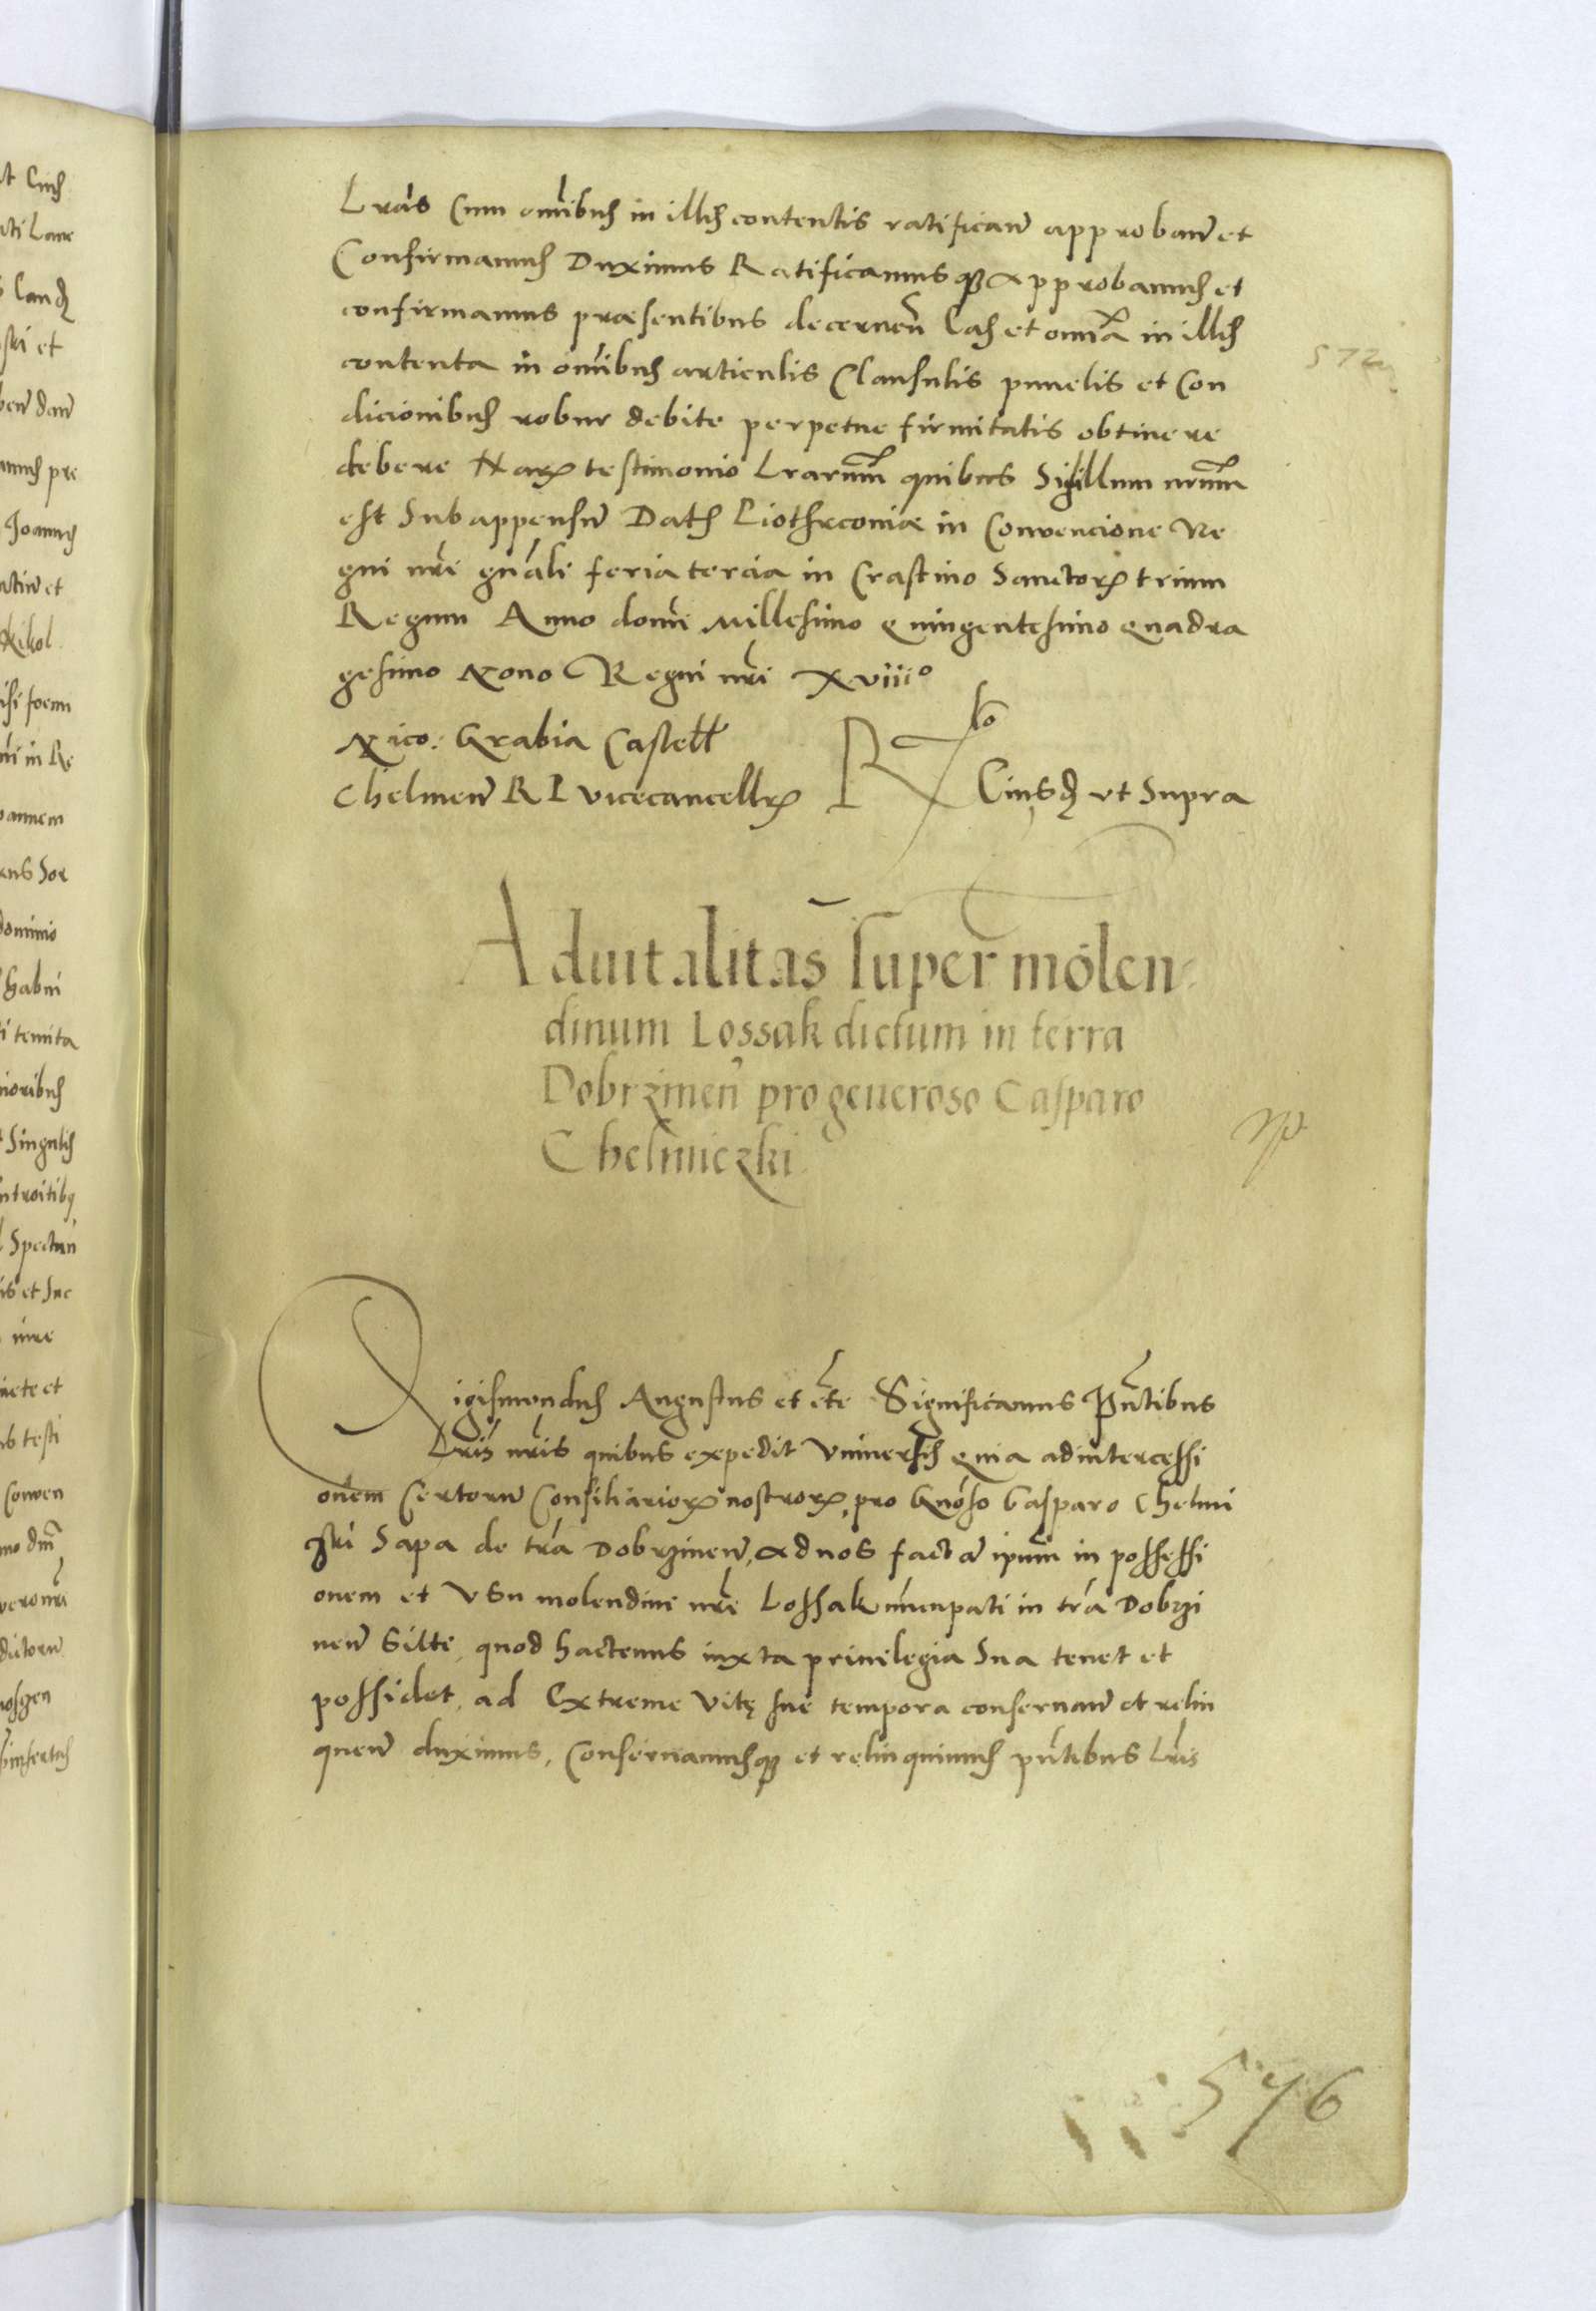 Lrās Cum oībus in illis contentis ratifican̄ approban̄ et
Confirmamus Duximus Ratificamusqз Approbamus et
confirmamus præsentibus decernen̄ Eas et omīa in illis
contenta in oībus articulis Clausulis punctis et Con
dicionibus robur debite perpetue firmitatis obtinere
debere Harꝝ testimonio Lrarum̄ quibus Sigillum nrūm
est Subappensū Datꝭ Piothrconiæ in Convencione Re
gni nrī gnāli feria tercia in Crastino Sanctorꝝ trium
Regum Anno domī Millesimo quingentesimo quadra
gesimo Nono Regni nrī Xviiiº
572
Nico: Grabia Castell
Chelmen̄ R P vicecancellrꝫ
Rlo
Eiusdꝫ vt Supra
Advitalitas super molen
dinum Lossak dictum in terra
Dobrzinen̄ pro generoso Casparo
Chelmiczki
Sigismondus Augustus et cte Significamus Pn̄tibus
Lris nrīs quibus expedit Vniversis quia ad intercessi
onem Certorum̄ Consiliariorꝝ nostrorꝝ, pro Gnōso Casparo Chelmi
zki Sapa de trā Dobrzinen̄, ad nos factā ipum̄ in possessi
onem et Vsu molendini nrī Lossak nūncupati in trā Dobrzi
nen̄ Siti, quod hactenus iuxta privilegia Sua tenet et
possidet, ad Extreme Vitę sue tempora conservan̄ et relin
quen̄ duximus, Conservamusqз et relinquimus pn̄tibus Lrīs
576